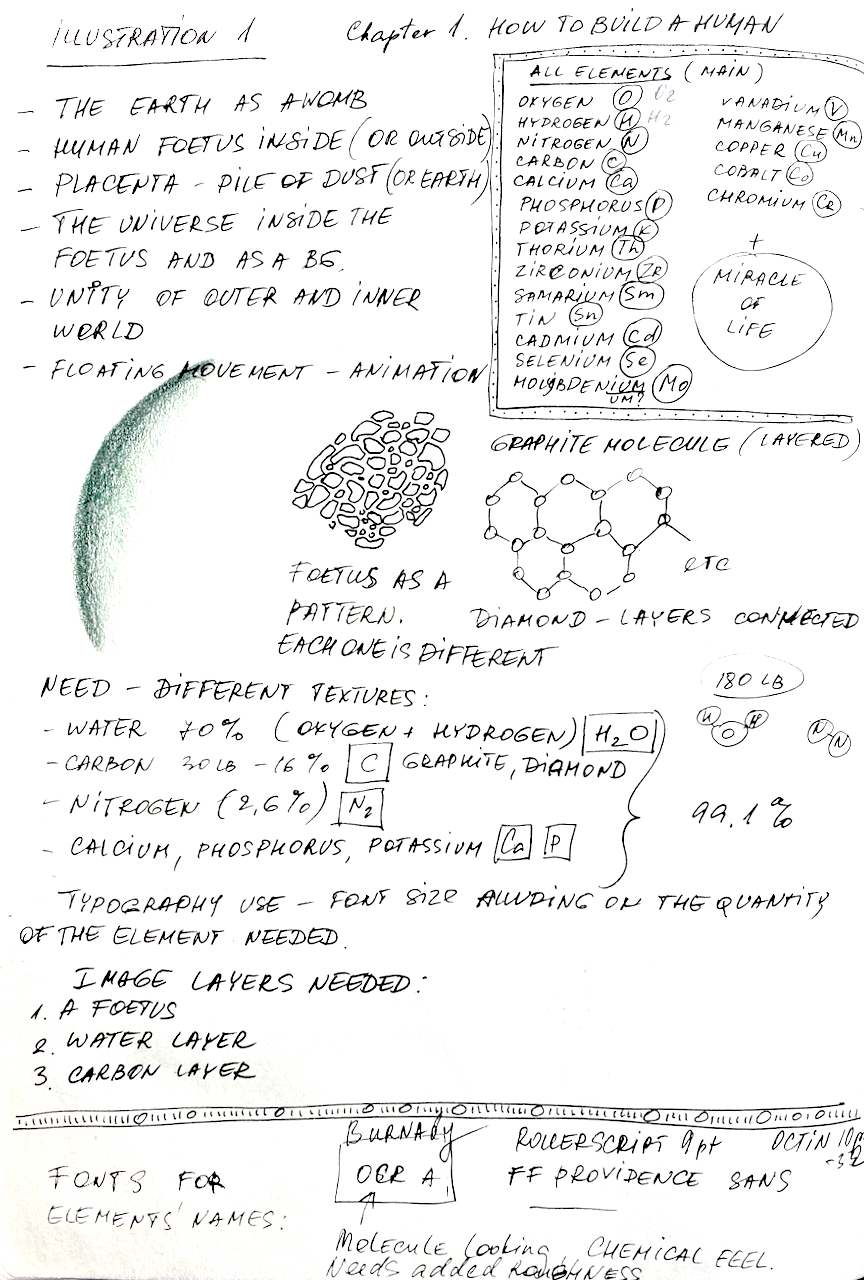 ILLUSTRATION 1
Chapter 1. HOW TO BUILD A HUMAN
- THE EARTH AS A WOMB
- HUMAN FOETUS INSIDE (OR OUTSIDE)
- PLACENTA - PILE OF DUST (OR EARTH)
- THE UNIVERSE INSIDE THE
FOETUS AND AS A BG.
- UNITY OF OUTER AND INNER
WORLD
- FLOATING MOVEMENT - ANIMATION
ALL ELEMENTS (MAIN)
OXYGEN O O2
HYDROGEN H H2
NITROGEN N
CARBON C
CALCIUM Ca
PHOSPHORUS P
POTASSIUM K
THORIUM Th
ZIRCONIUM ZR
SAMARIUM Sm
TIN Sn
CADMIUM Cd
SELENIUM Se
MOLYBDENIUM Mo
UM?
VANADIUM V
MANGANESE Mn
COPPER Cu
COBALT Co
CHROMIUM CR
+
MIRACLE
OF
LIFE
GRAPHITE MOLECULE (LAYERED)
ETC
FOETUS AS A
PATTERN.
EACH ONE IS DIFFERENT
DIAMOND - LAYERS CONNECTED
NEED - DIFFERENT TEXTURES:
- WATER 70% (OXYGEN + HYDROGEN) H2O
- CARBON 30 LB - 16% C GRAPHITE, DIAMOND
- NITROGEN (2,6%) N2
- CALCIUM, PHOSPHORUS, POTASSIUM Ca P
180 LB
H O H N N
99.1%
TYPOGRAPHY USE - FONT SIZE ALLUDING ON THE QUANTITY
OF THE ELEMENT NEEDED.
IMAGE LAYERS NEEDED:
1. A FOETUS
2. WATER LAYER
3. CARBON LAYER
FONTS FOR
ELEMENTS' NAMES:
BURNABY
OCR A
ROLLERSCRIPT 9pt
FF PROVIDENCE SANS
OCTIN
Molecule looking, CHEMICAL ELEL.
Needs added ROUGHNESS